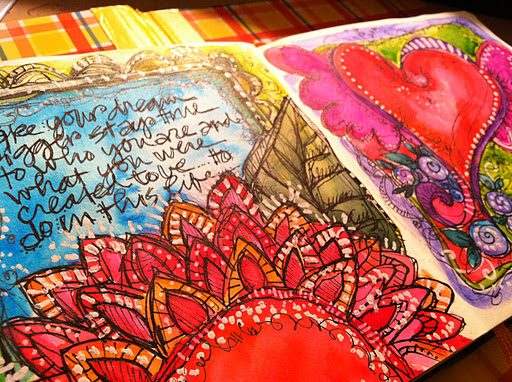 see your dream
bigger stay true
to who you are and
what you were
created to be... to
do in this life